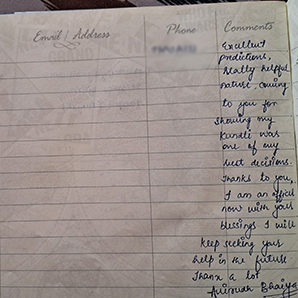 Email | Address Phone Comments
Excellent
predictions,
Really helpful
nature, coming
to you for
showing my
Kundli was
one of my
best decisions.
Thanks to you,
I am an officer
now with your
blessings I will
keep seeking your
help in the future
Thanx a lot
Anirudh Bhaiya